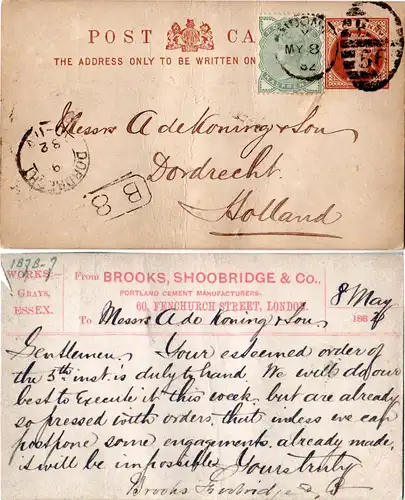 POST CA
THE ADDRESS ONLY TO BE WRITTEN ON
LONDON
MY 8
82
Messrs A de Koning & Son
Dordrecht
Holland
DORDRECHT
9
82
B8
1878-9
WORKS:-
GRAYS,
ESSEX.
From BROOKS, SHOOBRIDGE & Co.,
PORTLAND CEMENT MANUFACTURERS,
60, FENCHURCH STREET, LONDON
8 May
188 2
To Messrs A de Koning & Son
Gentlemen, Your esteemed order of
the 5th inst. is duly to hand. We will do our
best to execute it this week, but are already
so pressed with orders, that unless we can
postpone some engagements already made,
it will be impossible. Yours truly
Brooks Shoobridge & Co